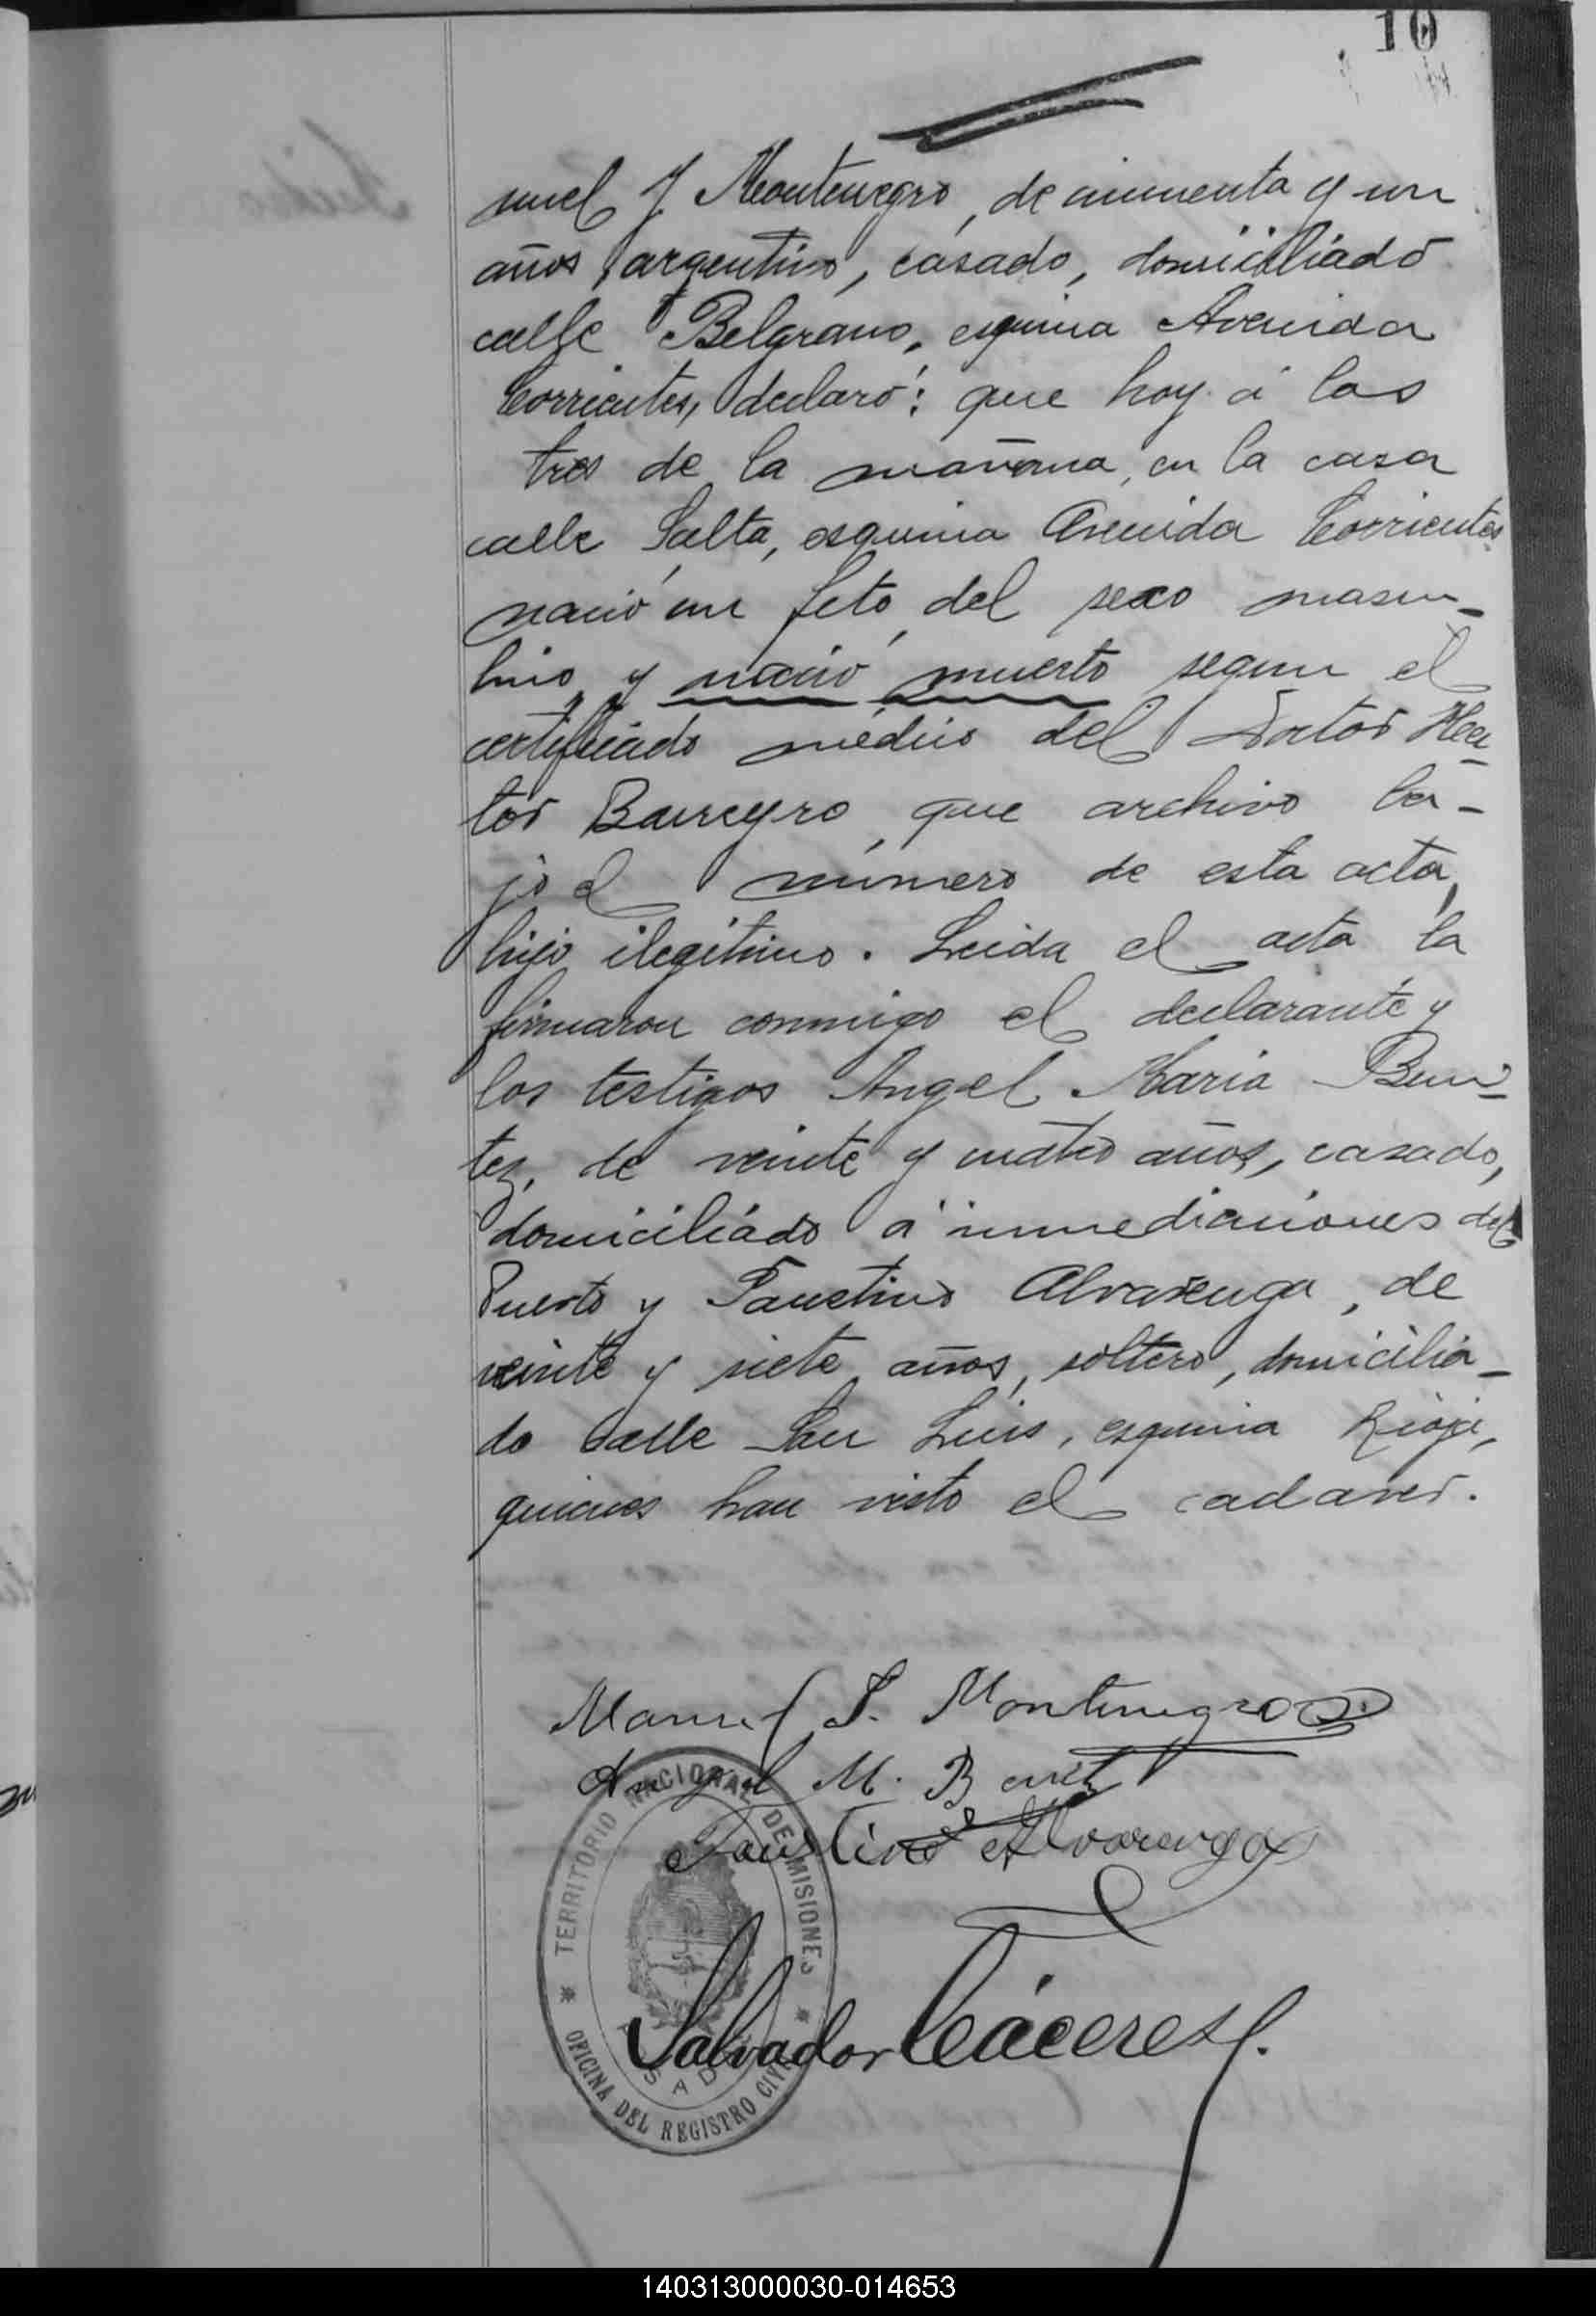 10
nuel J Montenegro, de cincuenta y un
años, argentino, casado, domiciliado
calle Belgrano, esquina Avenida
Corrientes, declaró: que hoy á las
tres de la mañana, en la casa
calle Salta, esquina Avenida Corrientes
nació un feto, del sexo mascu-
lino y nació muerto segun el
certificado médico del Doctor Hec-
tor Barreyro, que archivo ba-
jo el número de esta acta,
hijo ilegitimo. Leida el acta la
firmaron conmigo el declarante y
los testigos Angel Maria Beni-
tez, de veinte y cuatro años, casado,
domiciliado á inmediaciones del
Puerto y Faustino Alvarenga, de
veinte y siete años, soltero, domicilia-
do calle San Luis, esquina Rioja,
quienes han visto el cadaver.
Manuel J. Montenegro
Angel M. Benitez
Faustino Alvarenga
Salvador Cáceres
TERRITORIO NACIONAL DE MISIONES
OFICINA DEL REGISTRO CIVIL
140313000030-014653